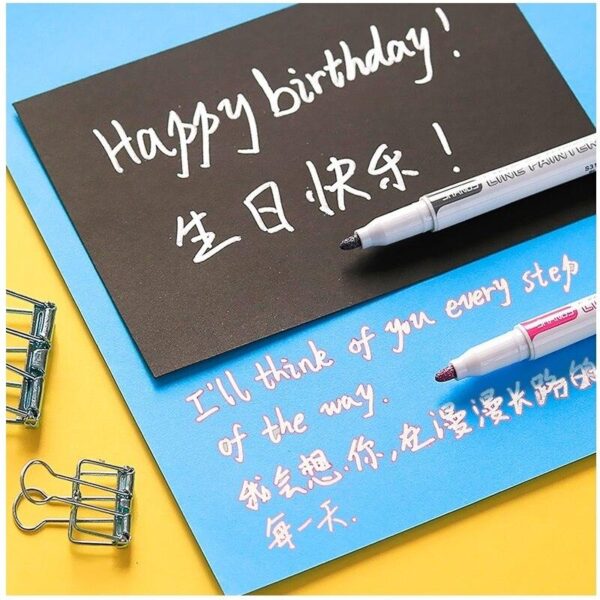 Happy birthday!
生日快乐!
LINE PAINTER
I'll think of you every step
of the way.
我会想你,在漫漫长路的
每一天.